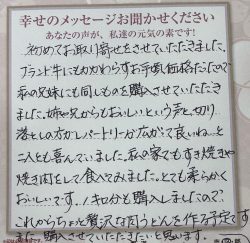 幸せのメッセージお聞かせください
あなたの声が、私達の元気の素です!
初めてお取り寄せをさせていただきました。
ブランド牛にもかかわらずお手頃価格だったので
私の兄妹にも同じものを購入させていただき
ました。姉や兄からもおいしいという声と、切り
落としの方がレパートリーが広がって良いね。と
二人とも喜んでいました。私の家でもすき焼きや
焼き肉をして食べてみました。とても柔らかく
おいしいです。1キロかも購入しましたので?
これからちょっと贅沢な肉うどんを作る予定です
また購入させていただきたいと思います。